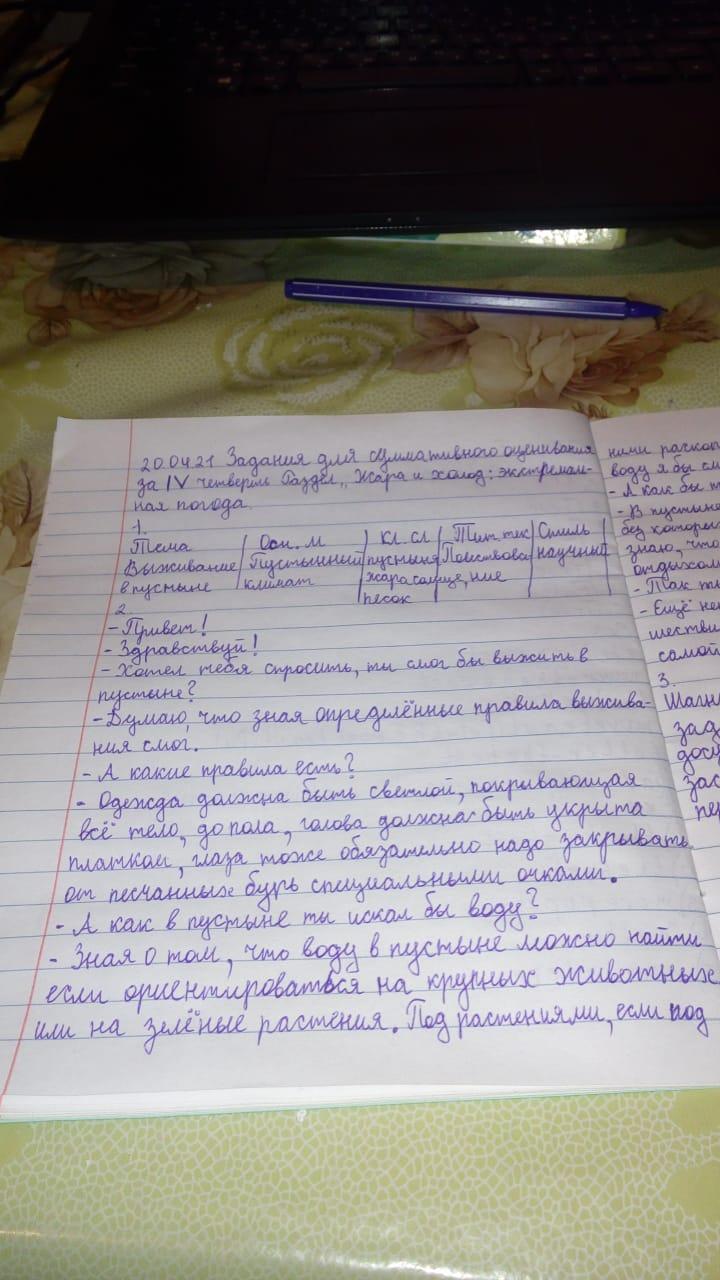 20.04.21 Задания для суммативного оценивания
за IV четверть Раздел „Жара и холод: экстремаль-
ная погода.
1.
Тема | Осн. м | кл. сл | Тип тек | Стиль
Выживание | Пустынный | пустыня | Повествова | научный
в пустыне | климат | жара солнце, | ние
песок
2.
- Привет!
- Здравствуй!
- Хотел тебя спросить, ты смог бы выжить в
пустыне?
- Думаю, что зная определённые правила выжива-
ния смог.
- А какие правила есть?
- Одежда должна быть светлой, покрывающая
всё тело, до пола, голова должна быть укрыта
платком, глаза тоже обязательно надо закрывать
от песчанных бурь специальными очками.
- А как в пустыне ты искал бы воду?
- Зная о том, что воду в пустыне можно найти
если ориентироваться на крупных животных
или на зелёные растения. Под растениями, если под
ними
воду я бы
- А как бы
- В пустыне
без которы
знаю, что
отдыхом
- Так
- Ещё не
шестви
самой
3.
зад